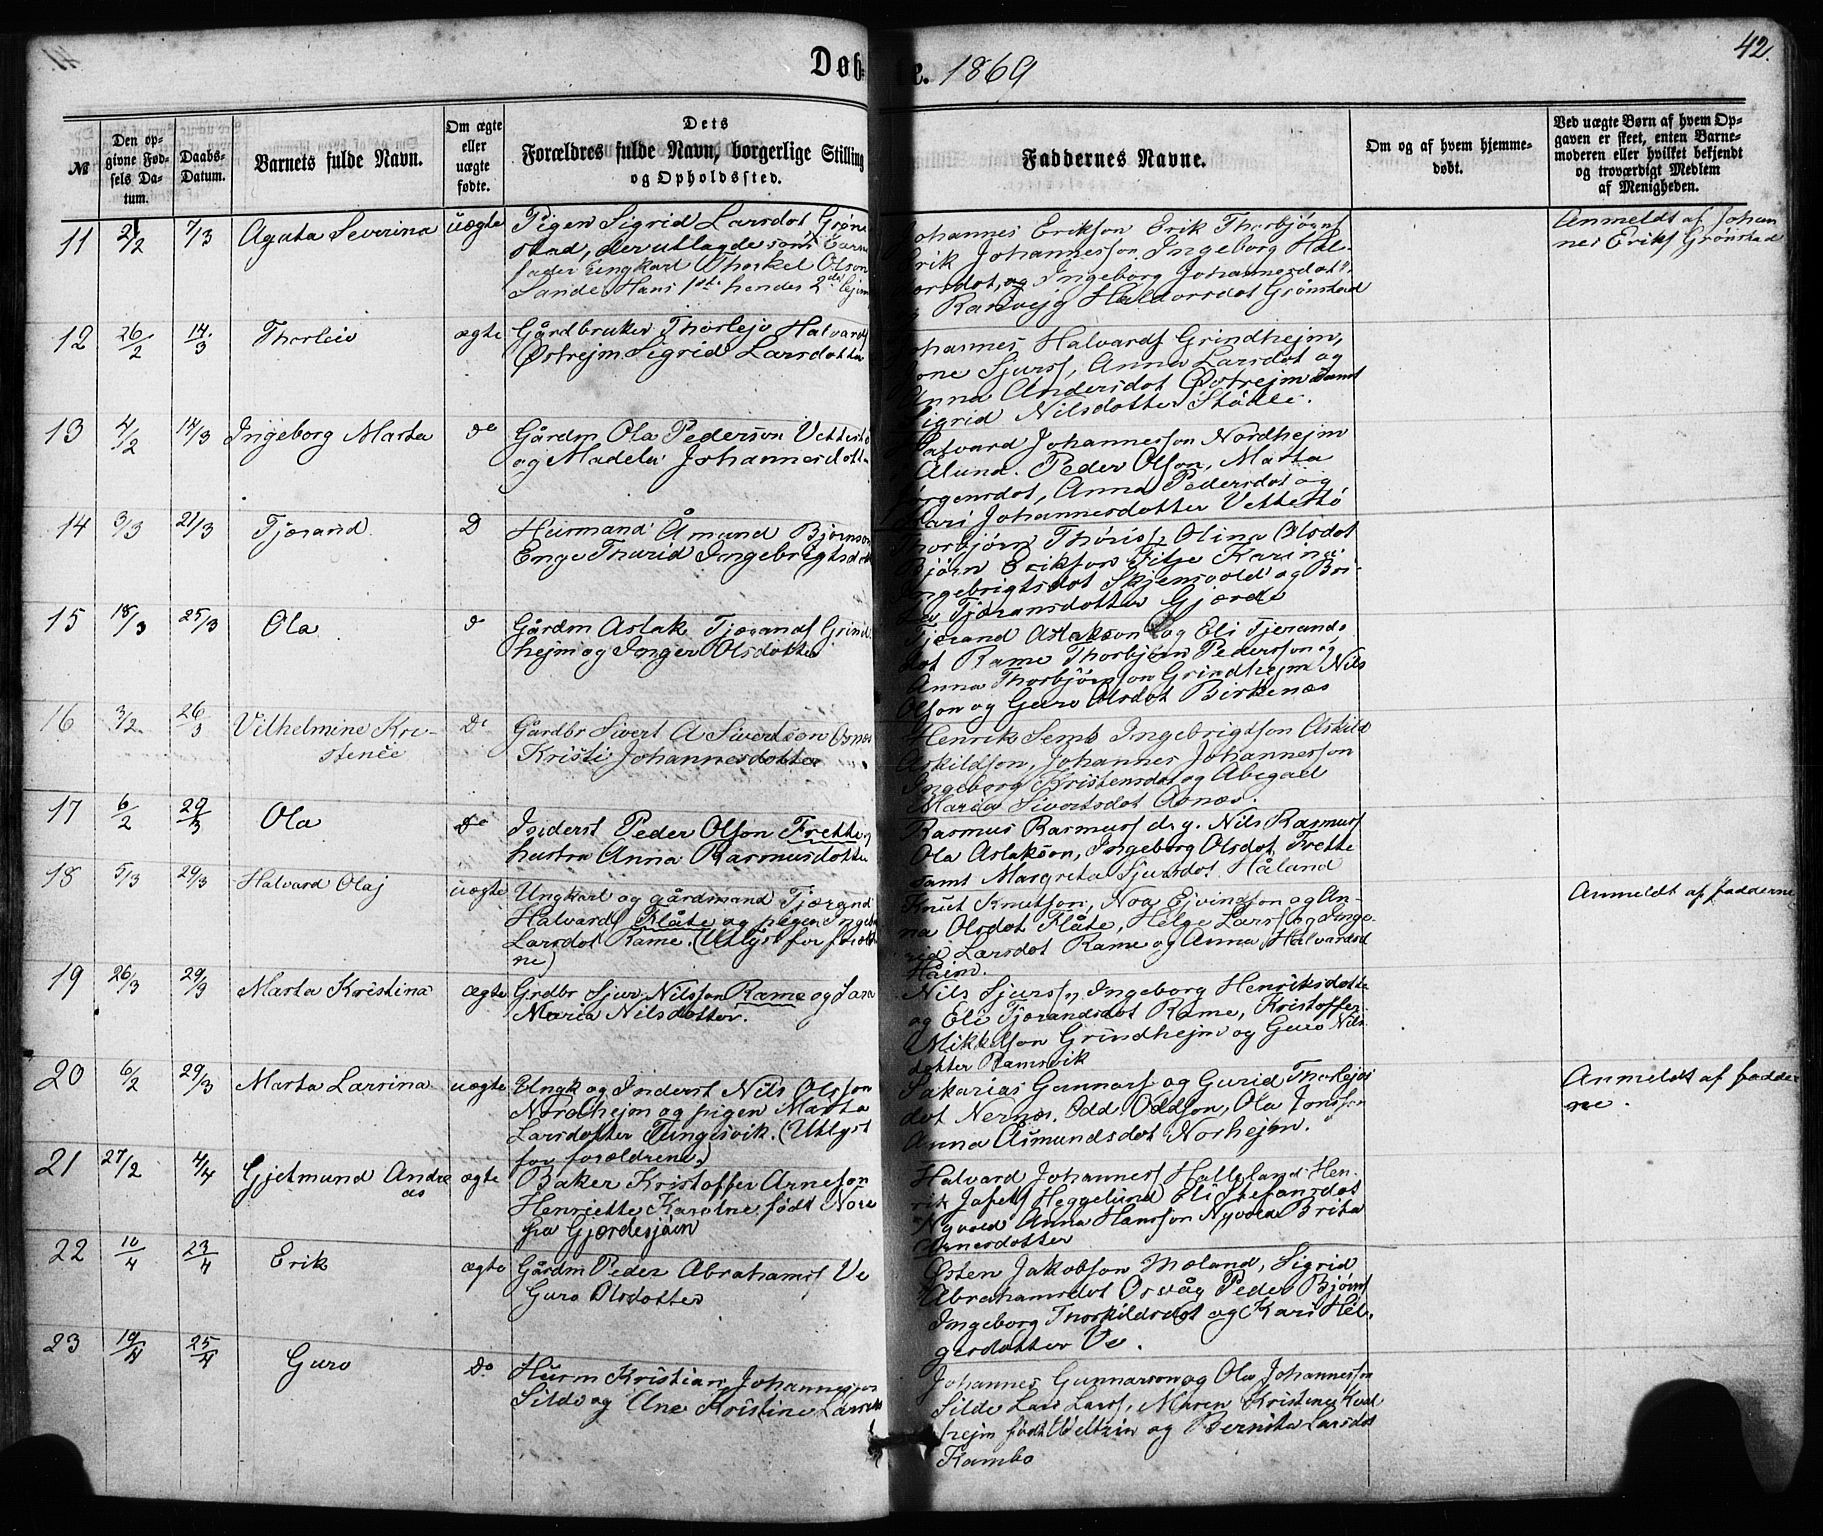 41
Døb-
te. 1869
42.
№
Den op-
givne Fød-
sels Da-
tum.
Daabs-
Datum.
Barnets fulde Navn.
Om ægte
eller
uægte
fødte.
Dets
Forældres fulde Navn, borgerlige Stilling
og Opholdssted.
Faddernes Navne.
Om og af hvem hjemme-
døbt.
Ved uægte Børn af hvem Op-
gaven er skeet, enten Barne-
moderen eller hvilket bekjendt
og troværdigt Medlem
af Menigheden.
11 7/3 Agata Severina uægte
Pigen Sigrid Larsdot Grøn-
stad, der utlagde som Barne
fader Ungkarl Thorkel Olson
Sande. Hans 1ste hendes 2det lejm
Johannes Erikson Erik Thorbjøgns
Erik Johannesson Ingeborg Hal-
dorsdot, og Ingeborg Johannesdot
Ranvejg Haldorsdot Grønstad
Anmeldt af Johan
nes Eriks Grønstad
12 26/2 14/3 Thorleiv ægte
Gårdbruker Thorlejv Halvards
Østrejm Sigrid Larsdotter
Johannes Halvards Grindhejm,
one Sjurs, Anna Larsdot og
Anna Andersdot Østrejm samt
Sigrid Nilsdotter Stødle.
13 4/2 14/3 Ingeborg Marta do
Gårdm Ola Pederson Vettestø
og Madele Johannesdotte
Halvard Johannesson Nordhejm
Ølund. Peder Olson, Marta
Jørgensdot, Anna Pedersdot og
Kari Johannesdotter Vettestø
14 3/3 21/3 Tjærand D
Huusmand Åmund Bjørnson
Enge Thurid Ingebrigtsdot
Thorbjørn Olina Olsdot
Bjørn Erikson Fitje Karina
Ingebrigtsdot Skjensvold og Bri-
ta Tjæransdotter Gjærde
15 18/3 25/3 Ola do
Gårdm Aslak Tjærands Grind
hejm og Inger Olsdotter
Tjerand Aslakson og Eli Tjerands
dot Rame Thorbjørn Pedersson og
Anna Thorbjørnson Grindhejm Nils
Olson og Guro Olsdot Birkenæs
16 3/2 26/3 Vilhelmine Kri-
stence Do
Gårdbr Sivert A Sivertson Osnæs
Kristi Johannesdotter
Henrik Semb Ingebrigtson Askild
Askildson, Johannes Johannesson
Ingeborg Kristensdot og Abegael
Maria Sivertsdot Osnæs.
17 6/2 29/3 Ola Do
Inderst Peder Olson Frette og
hustru Anna Rasmusdotter
Rasmus Rasmuss d. y. Nils Rasmuss
Ola Aslakson, Ingeborg Olsdot Frette
samt Margreta Sjursdot Håland
18 5/3 29/3 Halvard Olaj uægte
Ungkarl og gårdmand Tjærand
Halvards Flåte og pigen Inge
Larsdot Rame. (Utlyst for foreldre
ne)
Knut Knutson, Noa Ejvindson og An-
na Olsdot Flåte, Helge Larss og Inge-
rid Larsdot Rame og Anna Halvardsd
Hæim.
Anmeldt af fadderne
19 26/3 29/3 Marta Kristina ægte
Grdbr Sjur Nilsson Rame og Sara
Maria Nilsdotter.
Nils Sjurss, Ingeborg Henriksdotte
og Eli Tjærandsdot Rame, Kristoffer
Mikkelson Grindhejm og Guro Nils
dotter Ramsvik
20 6/2 29/3 Marta Larsina uægte
Ungk og Inderst Nils Olsson
Nordhejm og pigen Marta
Larsdotter Tungesvik. (Utlyst
for forældrene)
Sakarias Gunnars og Gurid Thorlejvs
dot Nernæs. Odd Oddson, Ola Jonsson
Anna Asmundsdot Norhejm.
Anmeldt af fadder
ne.
21 27/2 4/4 Gjetmund Andre
as ægte
Baker Kristoffer Arneson
Henriette Karolne født Nore
fra Gjærdesjøin
Halvard Johanness Halleland Hen-
rik Jafets Heggelund Eli Stefansdot
Nyvold Anna Hansson Nyvold Brita
Arnesdotter
22 10/4 23/4 Erik ægte
Gårdm Peder Abrahams Ve
Guro Olsdotter
Østen Jakobson Moland, Sigrid
Abrahamsdot Orvåg Peder Bjørns
Ingeborg Thorkildsdot og Kari Hel-
gesdotter Ve.
23 19/4 25/4 Guro Do.
Husm Kristian Johannesson
Silde og Ane Kristine Larsd
Johannes Gunnarson og Ola Johannesson
Silde Lars Larss, Maren Kristine Kval
hejm født og Bernita Larsdot
Kambo